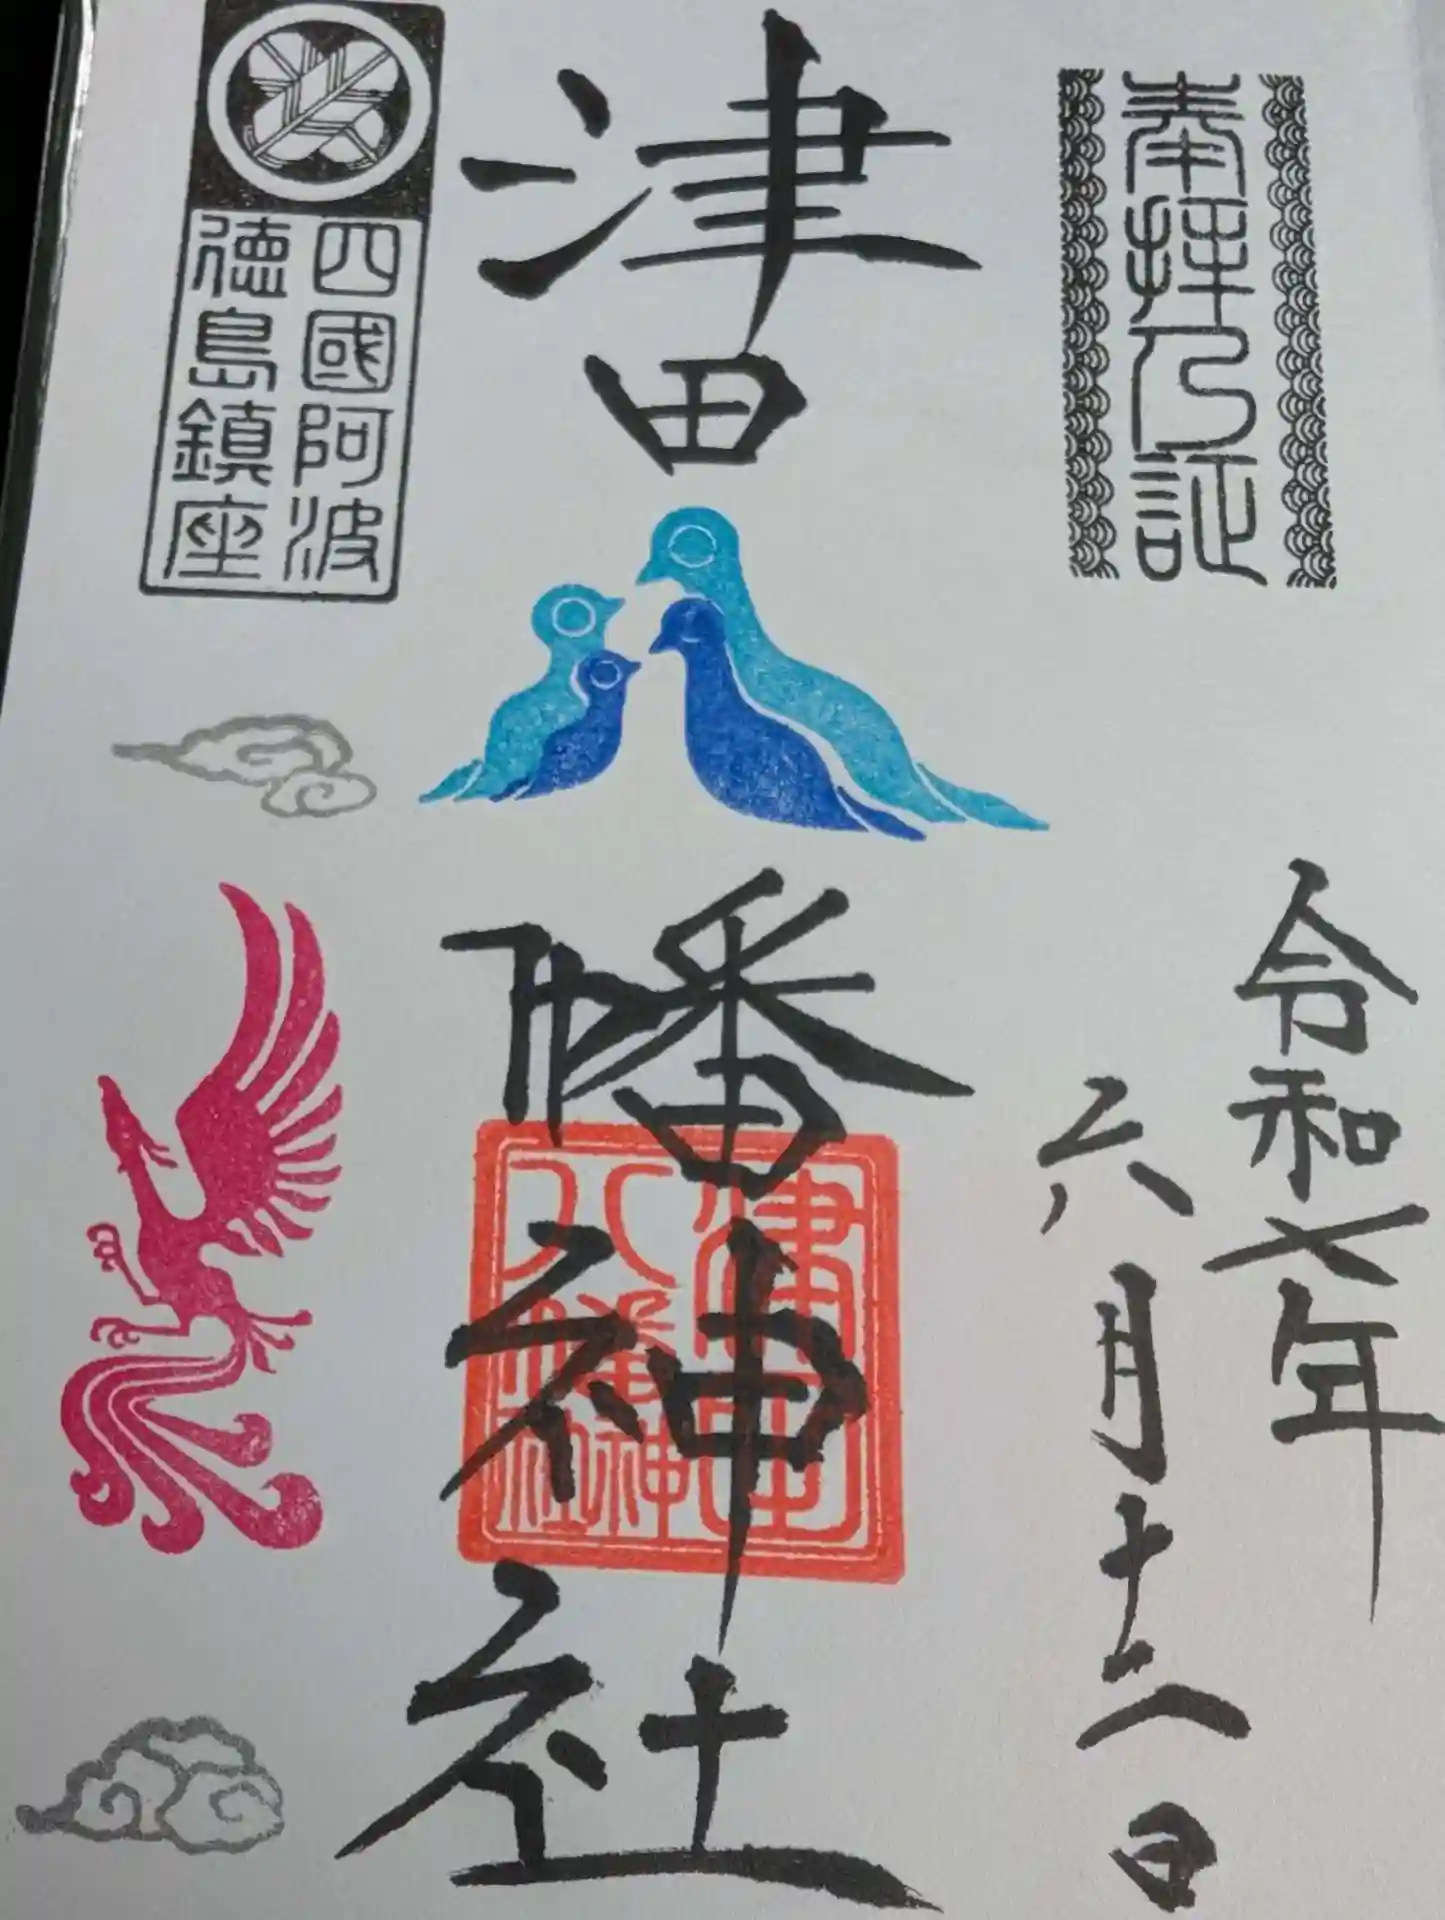 奉拝乃証
令和七年
六月十日
津田
幡神社
津田
八幡
神社
四國阿波
徳島鎮座